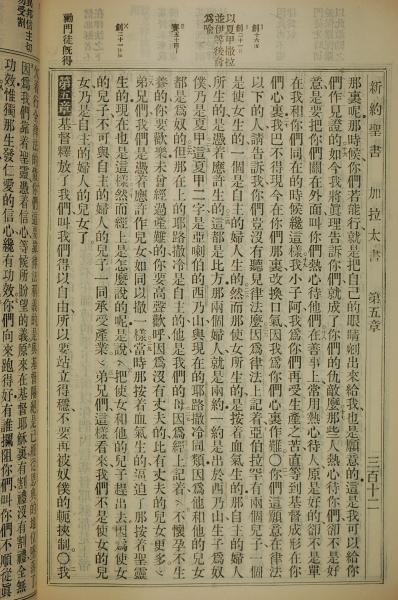 新約聖書　加拉太書　第五章　三百十二
那裏呢那時候你們若能行就是把自己的眼睛剜出來給我也是願意的這是我可以給你
們作見證的如今我將眞理告訴你們就成了你們的仇敵麼那些人熱心待你們卻不是好
意是要把你們關在外面叫你們熱心待他們在善事上常用熱心待人原是好的卻不是單
在我和你們同在的時候纔這樣我小子阿我爲你們再受生產之苦直等到基督成形在你
們心裏我巴不得現今在你們那裏改換口氣因我爲你們心裏作難〇你們這願意在律法
以下的人請告訴我你們豈沒有聽見律法麼因爲律法上記着亞伯拉罕有兩個兒子一個
是使女生的一個是自主的婦人生的然而那使女所生的是按着血氣生的那自主的婦人
所生的是憑着應許生的這都是比方那兩個婦人就是兩約一約是出於西乃山生子爲奴
僕乃是夏甲這夏甲二字是亞喇伯的西乃山與現在的耶路撒冷同類因爲他和他的兒女
都是爲奴的但那在上的耶路撒冷是自主的他是我們的母因爲經上記着不懷孕不生
養的你要歡樂未曾經過產難的你要高聲歡呼因爲沒有丈夫的比有丈夫的兒女更多
弟兄們我們是憑着應許作兒女如同以撒一樣當時那按着血氣生的逼迫了那按着聖靈
生的現在也是這樣然而經上是怎麽說的呢是說把使女和他的兒子趕出去因爲使女
的兒子不可與自主的婦人的兒子一同承受產業弟兄們這樣看來我們不是使女的兒
女乃是自主的婦人的兒女了
第五章基督釋放了我們叫我們得以自由所以要站立得穩不要再被奴僕的軛挾制〇我
以夏甲撒拉
並伊等後裔
爲喩
勸門徒旣得
因爲我們靠着聖靈憑着信心等候所盼望的義原來在基督耶穌裏有割禮沒有割禮全無
功效惟獨那生發仁愛的信心纔有功效你們向來跑得好有誰攔阻你們叫你們不順從眞